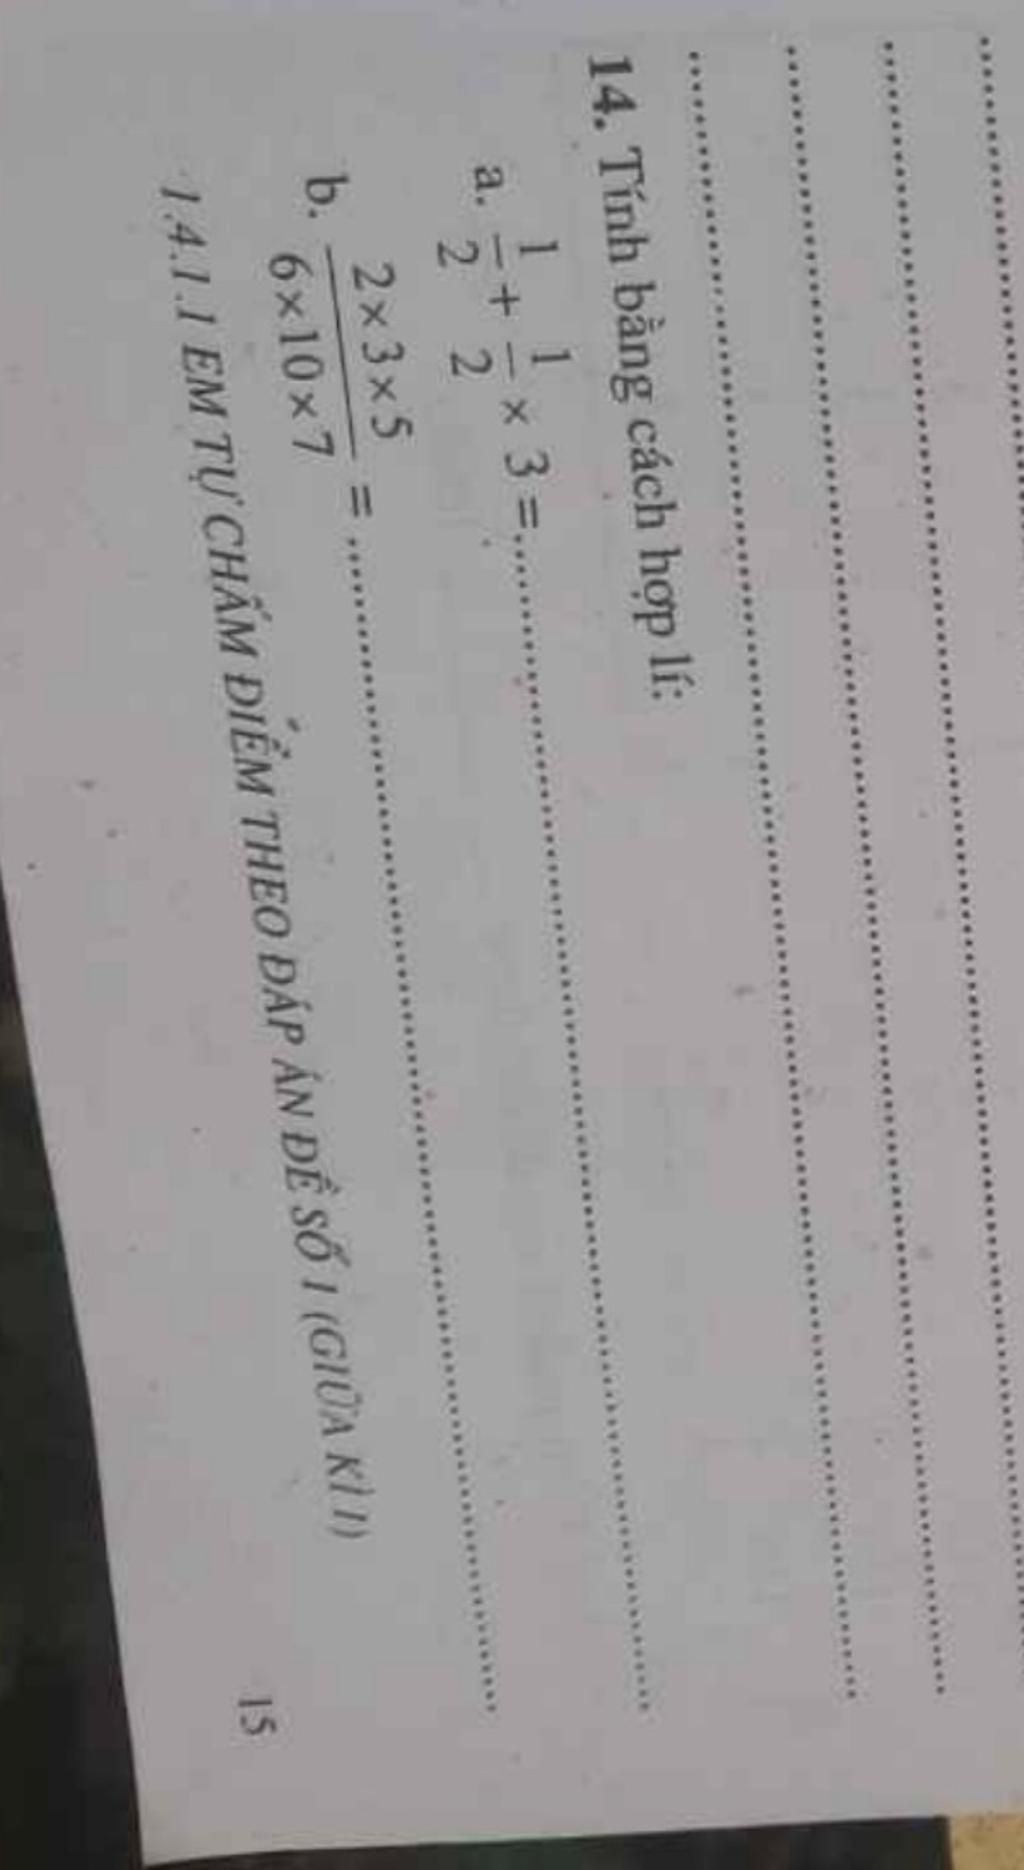 14. Tính bằng cách hợp lí:
a. 1/2 + 1/2 × 3 = ........................
b. (2×3×5)/(6×10×7) = ........................
1.4.1.1 EM TỰ CHẤM ĐIỂM THEO ĐÁP ÁN ĐỀ SỐ 1 (GIỮA KÌ I)
15